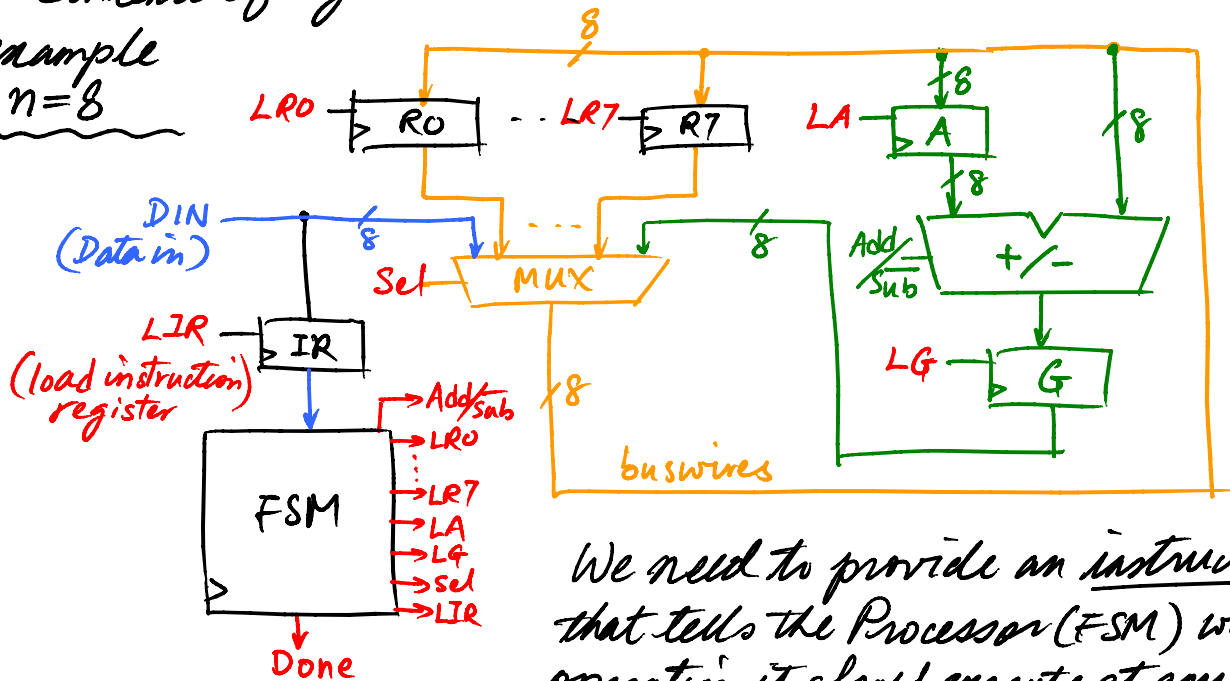 example
n=8
8
LR0
R0
...
LR7
R7
LA
A
8
8
8
DIN
(Data in)
8
...
8
Sel
MUX
Add/Sub
+/-
LIR
IR
(load instruction)
register
8
LG
G
buswires
FSM
Add/Sub
LR0
LR7
LA
LG
Sel
LIR
Done
We need to provide an
that tells the Processor (FSM)
it